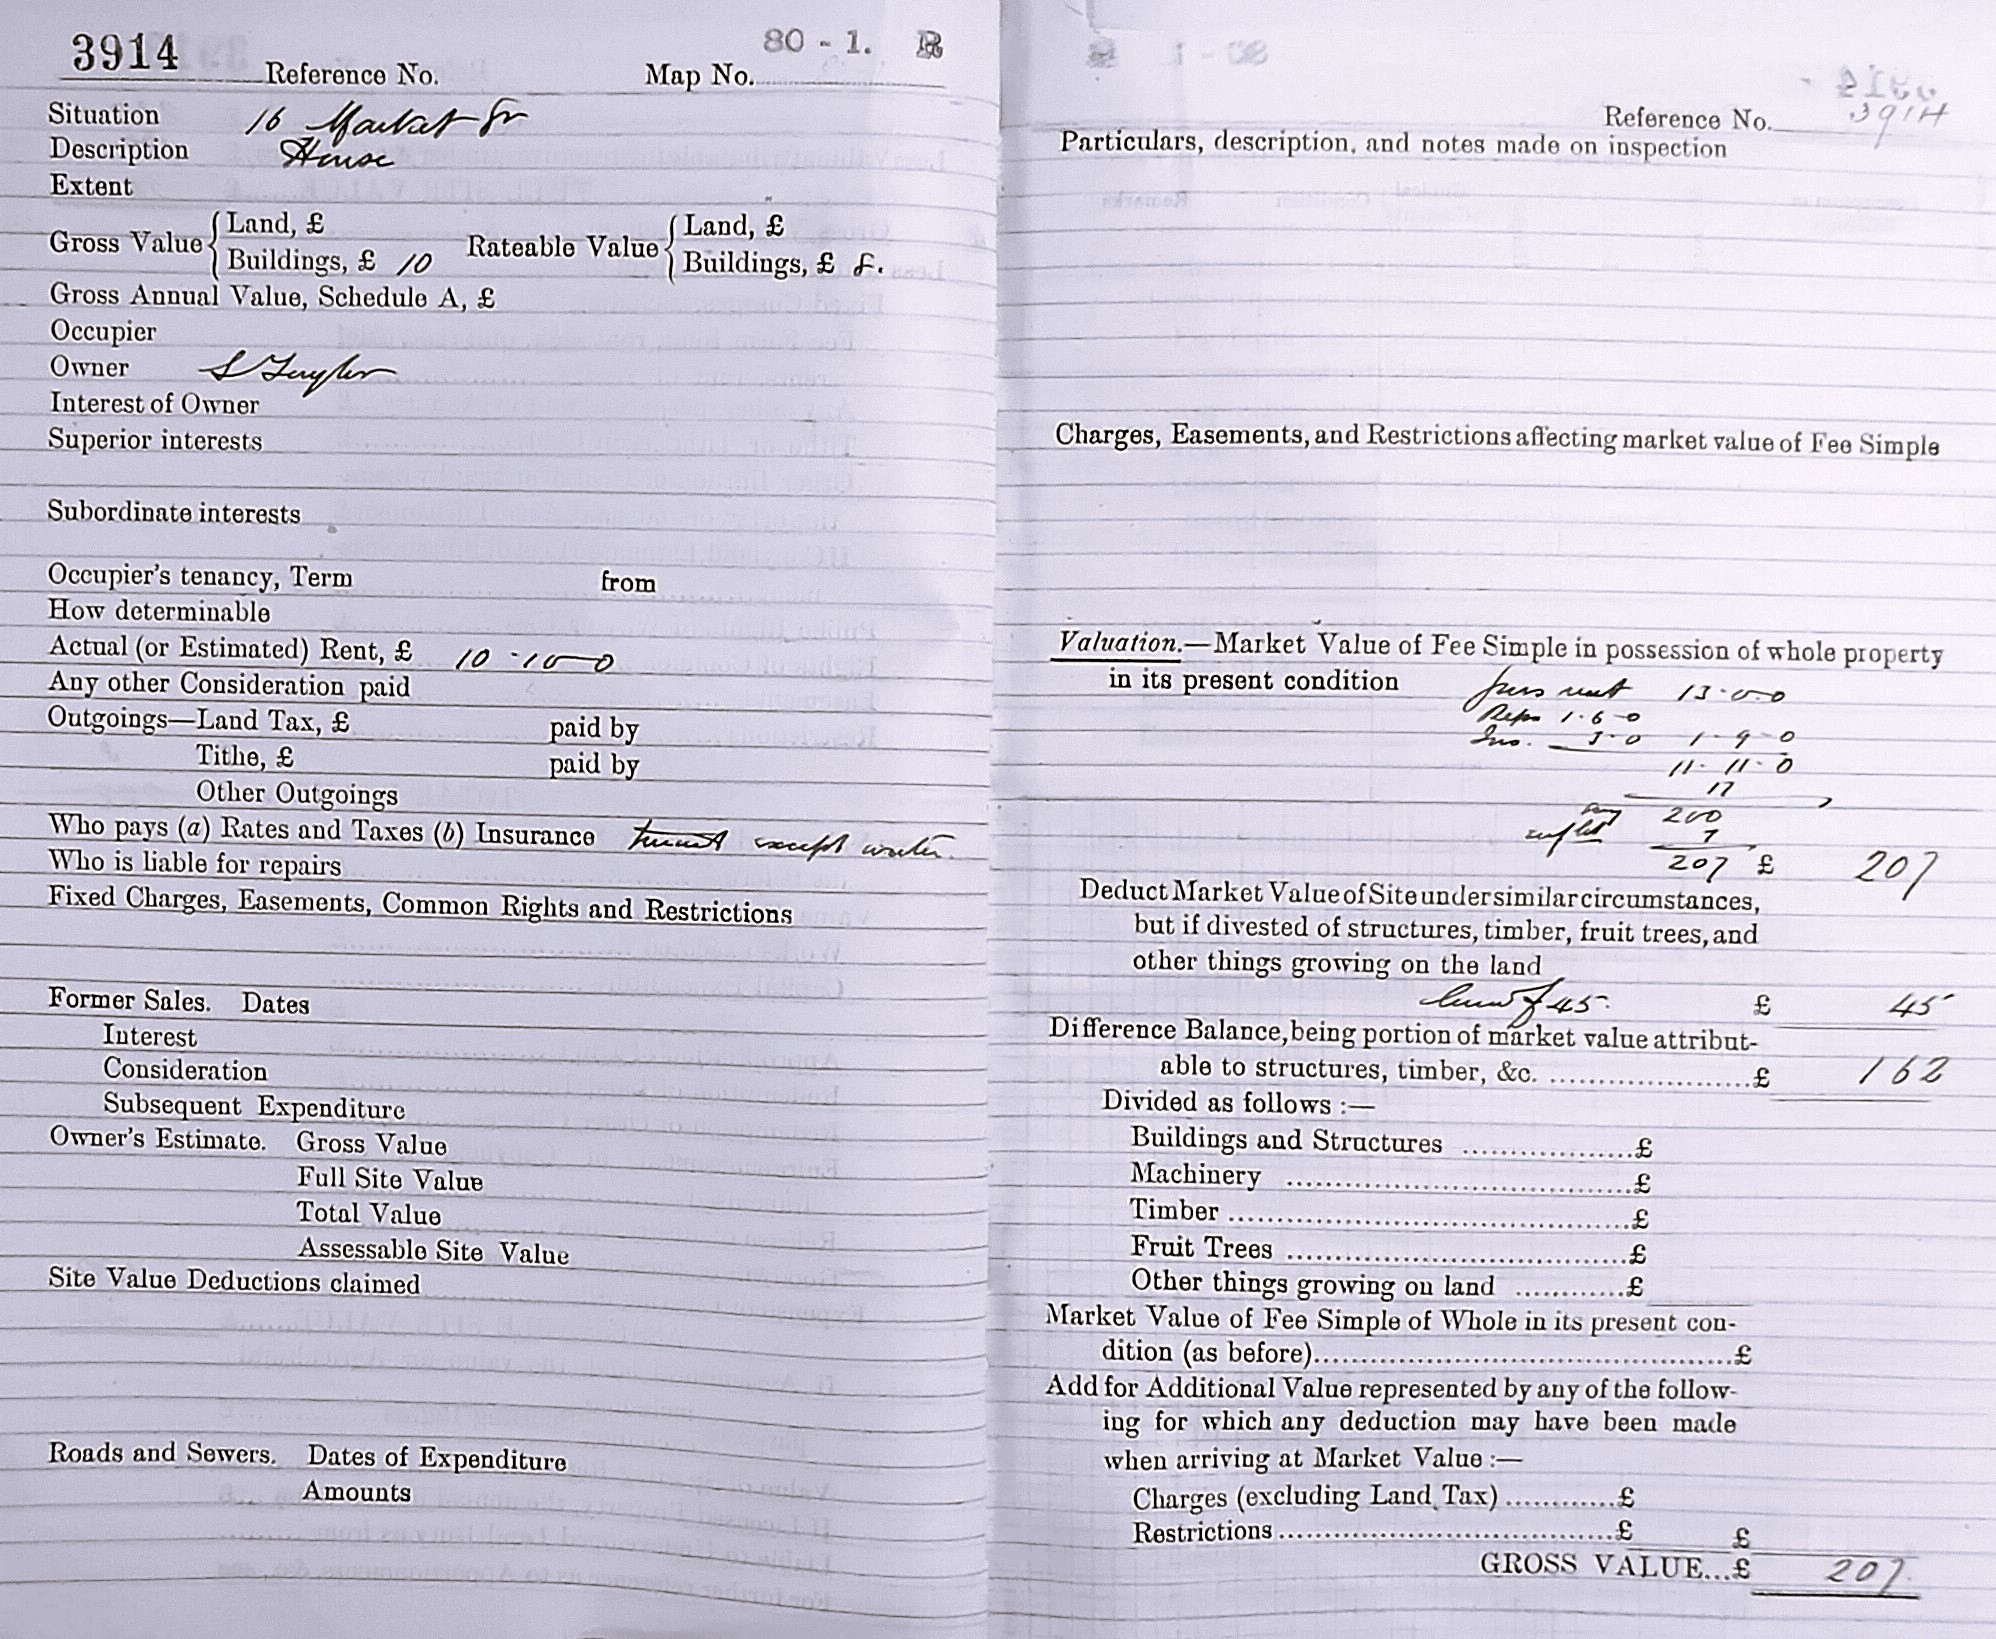 3914 Reference No. Map No. 80 - 1. B
Situation 16 Market St
Description House
Extent
Gross Value { Land, £ Rateable Value { Land, £
Buildings, £ 10 Buildings, £ 8.
Gross Annual Value, Schedule A, £
Occupier
Owner S Taylor
Interest of Owner
Superior interests
Subordinate interests
Occupier's tenancy, Term from
How determinable
Actual (or Estimated) Rent, £ 10 - 10 - 0
Any other Consideration paid
Outgoings—Land Tax, £ paid by
Tithe, £ paid by
Other Outgoings
Who pays (a) Rates and Taxes (b) Insurance tenant except water.
Who is liable for repairs
Fixed Charges, Easements, Common Rights and Restrictions
Former Sales. Dates
Interest
Consideration
Subsequent Expenditure
Owner's Estimate. Gross Value
Full Site Value
Total Value
Assessable Site Value
Site Value Deductions claimed
Roads and Sewers. Dates of Expenditure
Amounts
Reference No. 3914
Particulars, description, and notes made on inspection
Charges, Easements, and Restrictions affecting market value of Fee Simple
Valuation.—Market Value of Fee Simple in possession of whole property
in its present condition
rent 13 - 0 - 0
Reps 1 - 6 - 0
Ins. 3 - 0 1 - 9 - 0
11 - 11 - 0
17
say 200
7
207 £ 207
Deduct Market Value of Site under similar circumstances,
but if divested of structures, timber, fruit trees, and
other things growing on the land
45 £ 45
Difference Balance, being portion of market value attribut-
able to structures, timber, &c. ........................£ 162
Divided as follows :—
Buildings and Structures ..................£
Machinery .....................................£
Timber ...........................................£
Fruit Trees .....................................£
Other things growing on land ............£
Market Value of Fee Simple of Whole in its present con-
dition (as before)..............................................£
Add for Additional Value represented by any of the follow-
ing for which any deduction may have been made
when arriving at Market Value :—
Charges (excluding Land Tax) ............£
Restrictions.....................................£ £
GROSS VALUE...£ 207.